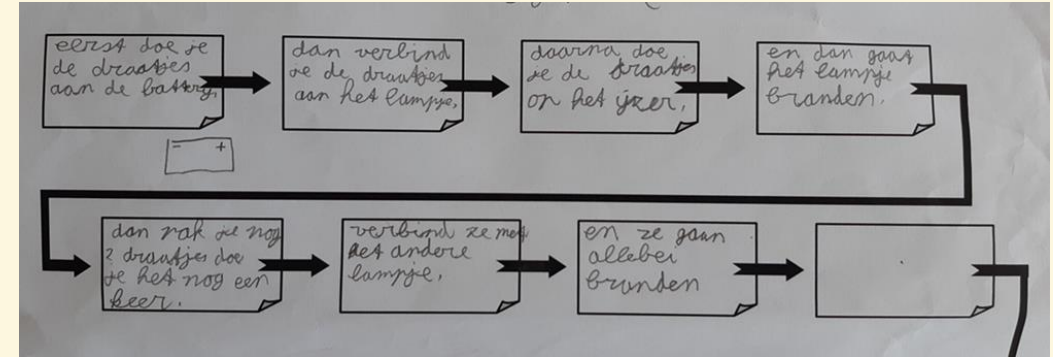 eerst doe je
de draatjes
aan de battery,
dan verbind
je de draatjes
aan het lampje,
daarna doe
je de draatjes
on het ijzer,
en dan gaat
het lampje
branden.
- +
dan rak je nog
2 draatjes doe
je het nog een
keer.
verbind ze met
het andere
lampje,
en ze gaan
allebei
branden